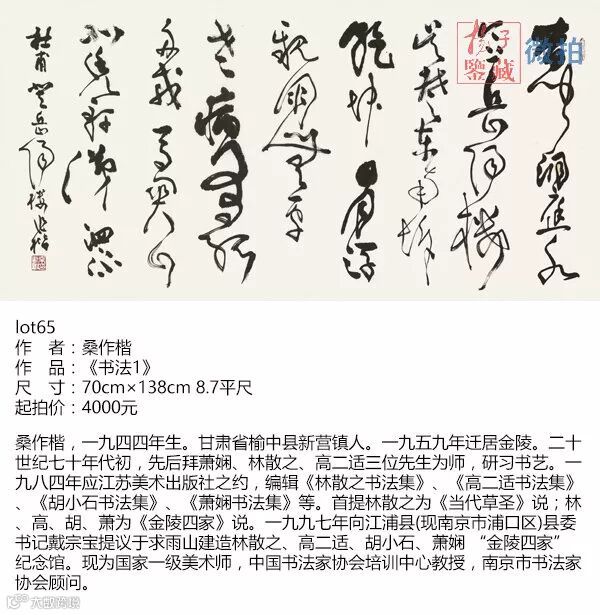 昔闻洞庭水
今上岳陽樓
吴楚東南坼
乾坤日夜浮
親朋無一字
老病有孤
舟戎馬關山
北憑軒涕泗流
杜甫登岳陽樓 作楷
微拍
lot65
作 者：桑作楷
作 品：《书法1》
尺 寸：70cm×138cm 8.7平尺
起拍价：4000元
桑作楷，一九四四年生。甘肃省榆中县新营镇人。一九五九年迁居金陵。二十
世纪七十年代初，先后拜萧娴、林散之、高二适三位先生为师，研习书艺。一
九八四年应江苏美术出版社之约，编辑《林散之书法集》、《高二适书法集》
、《胡小石书法集》、《萧娴书法集》等。首提林散之为《当代草圣》说；林
、高、胡、萧为《金陵四家》说。一九九七年向江浦县(现南京市浦口区)县委
书记戴宗宝提议于求雨山建造林散之、高二适、胡小石、萧娴 “金陵四家”
纪念馆。现为国家一级美术师，中国书法家协会培训中心教授，南京市书法家
协会顾问。
大欧跨境